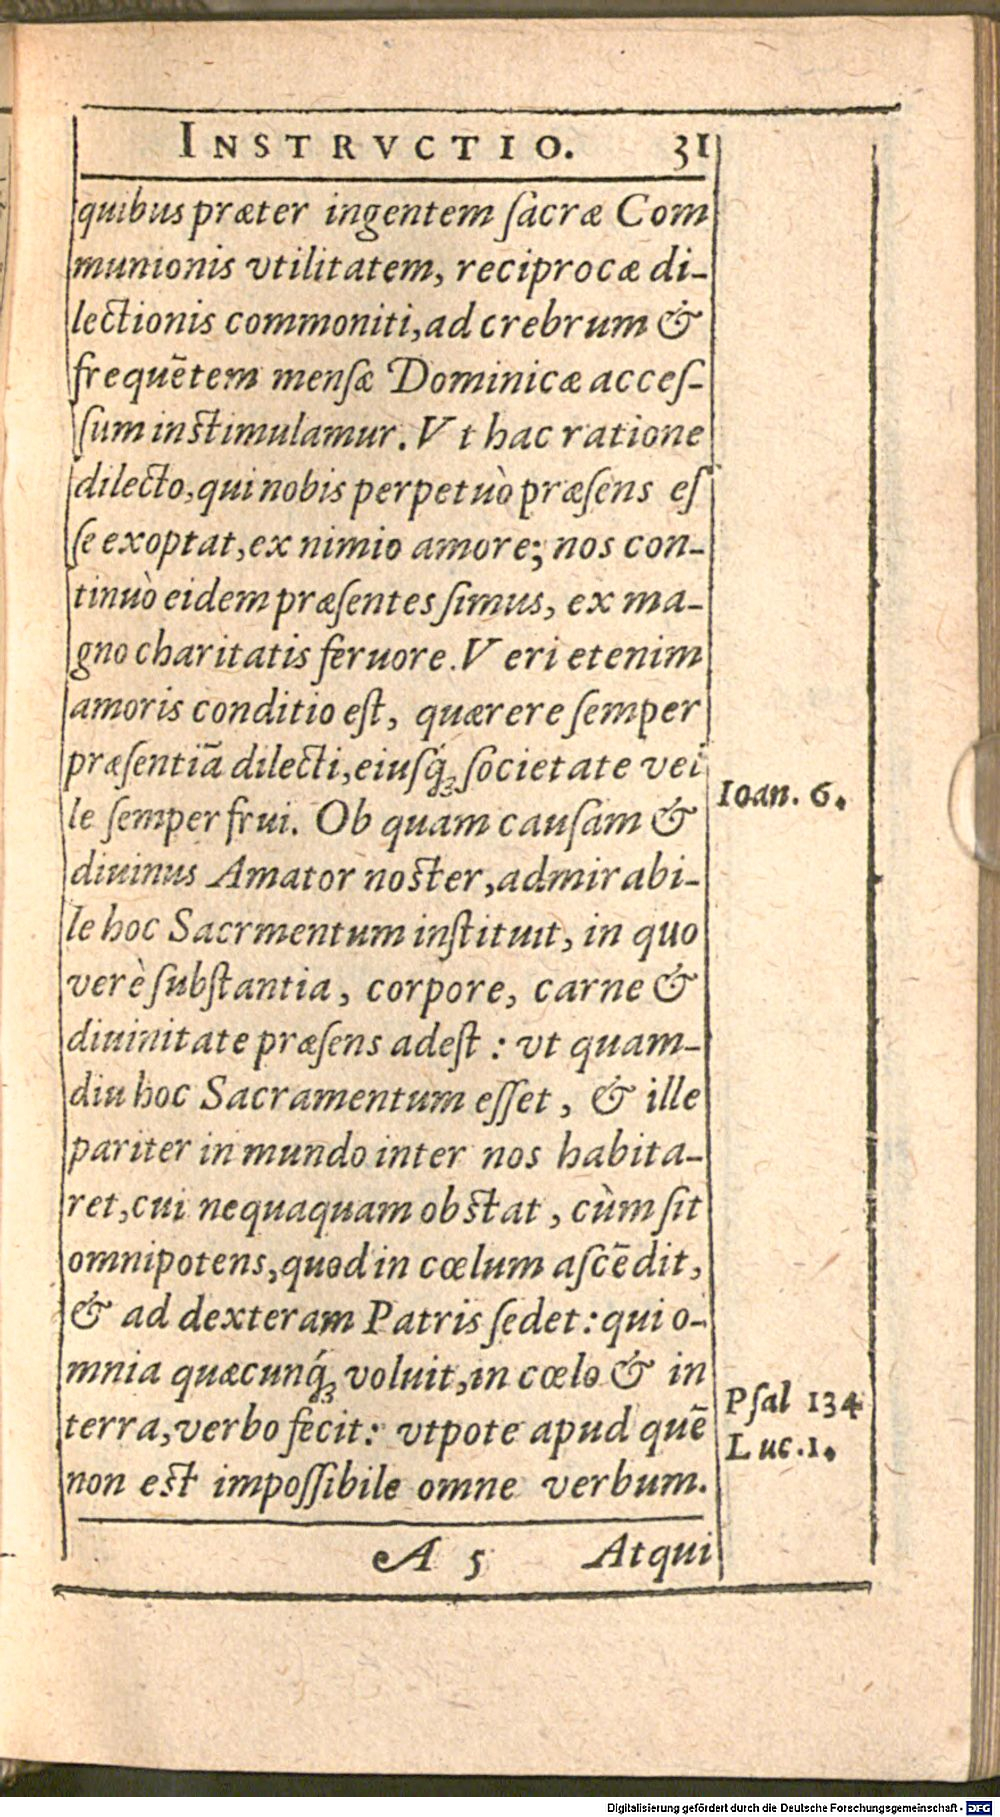 INSTRVCTIO. 31
quibus præter ingentem ſacræ Com
munionis vtilitatem, reciprocæ di-
lectionis commoniti, ad crebrum &
frequētem menſæ Dominicæ acceſ-
ſum inſtimulamur. Vt hac ratione
dilecto, qui nobis perpetuò præſens eſ
ſe exoptat, ex nimio amore; nos con-
tinuò eidem præſentes ſimus, ex ma-
gno charitatis feruore. Veri etenim
amoris conditio eſt, quærere ſemper
præſentiā dilecti, eiuſq́ꝫ ſocietate vel
le ſemper frui. Ob quam cauſam &
Ioan. 6.
diuinus Amator noſter, admirabi-
le hoc Sacrmentum inſtituit, in quo
verè ſubſtantia, corpore, carne &
diuinitate præſens adeſt : vt quam-
diu hoc Sacramentum eſſet, & ille
pariter in mundo inter nos habita-
ret, cui nequaquam obſtat, cùm ſit
omnipotens, quod in cœlum aſcēdit,
& ad dexteram Patris ſedet: qui o-
mnia quæcunq́ꝫ voluit, in cœlo & in
Pſal 134
terra, verbo fecit: vtpote apud quē
Luc. 1.
non eſt impoſſibile omne verbum.
A 5 Atqui
Digitalisierung gefördert durch die Deutsche Forschungsgemeinschaft - DFG